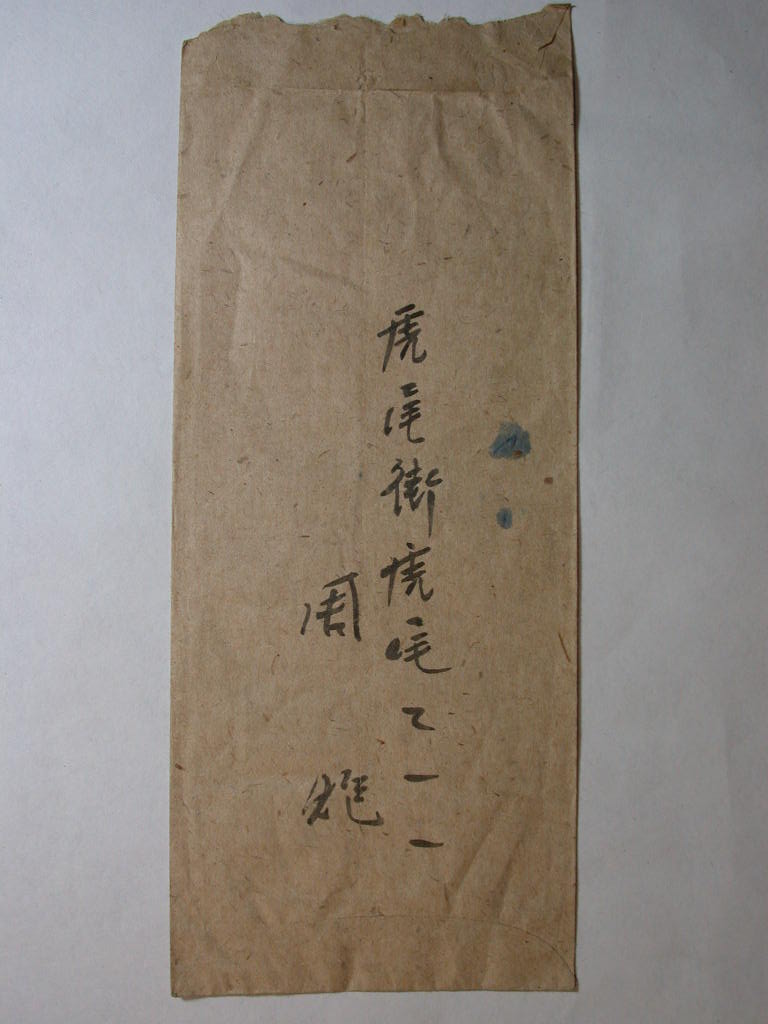 虎尾街虎尾二一一
周